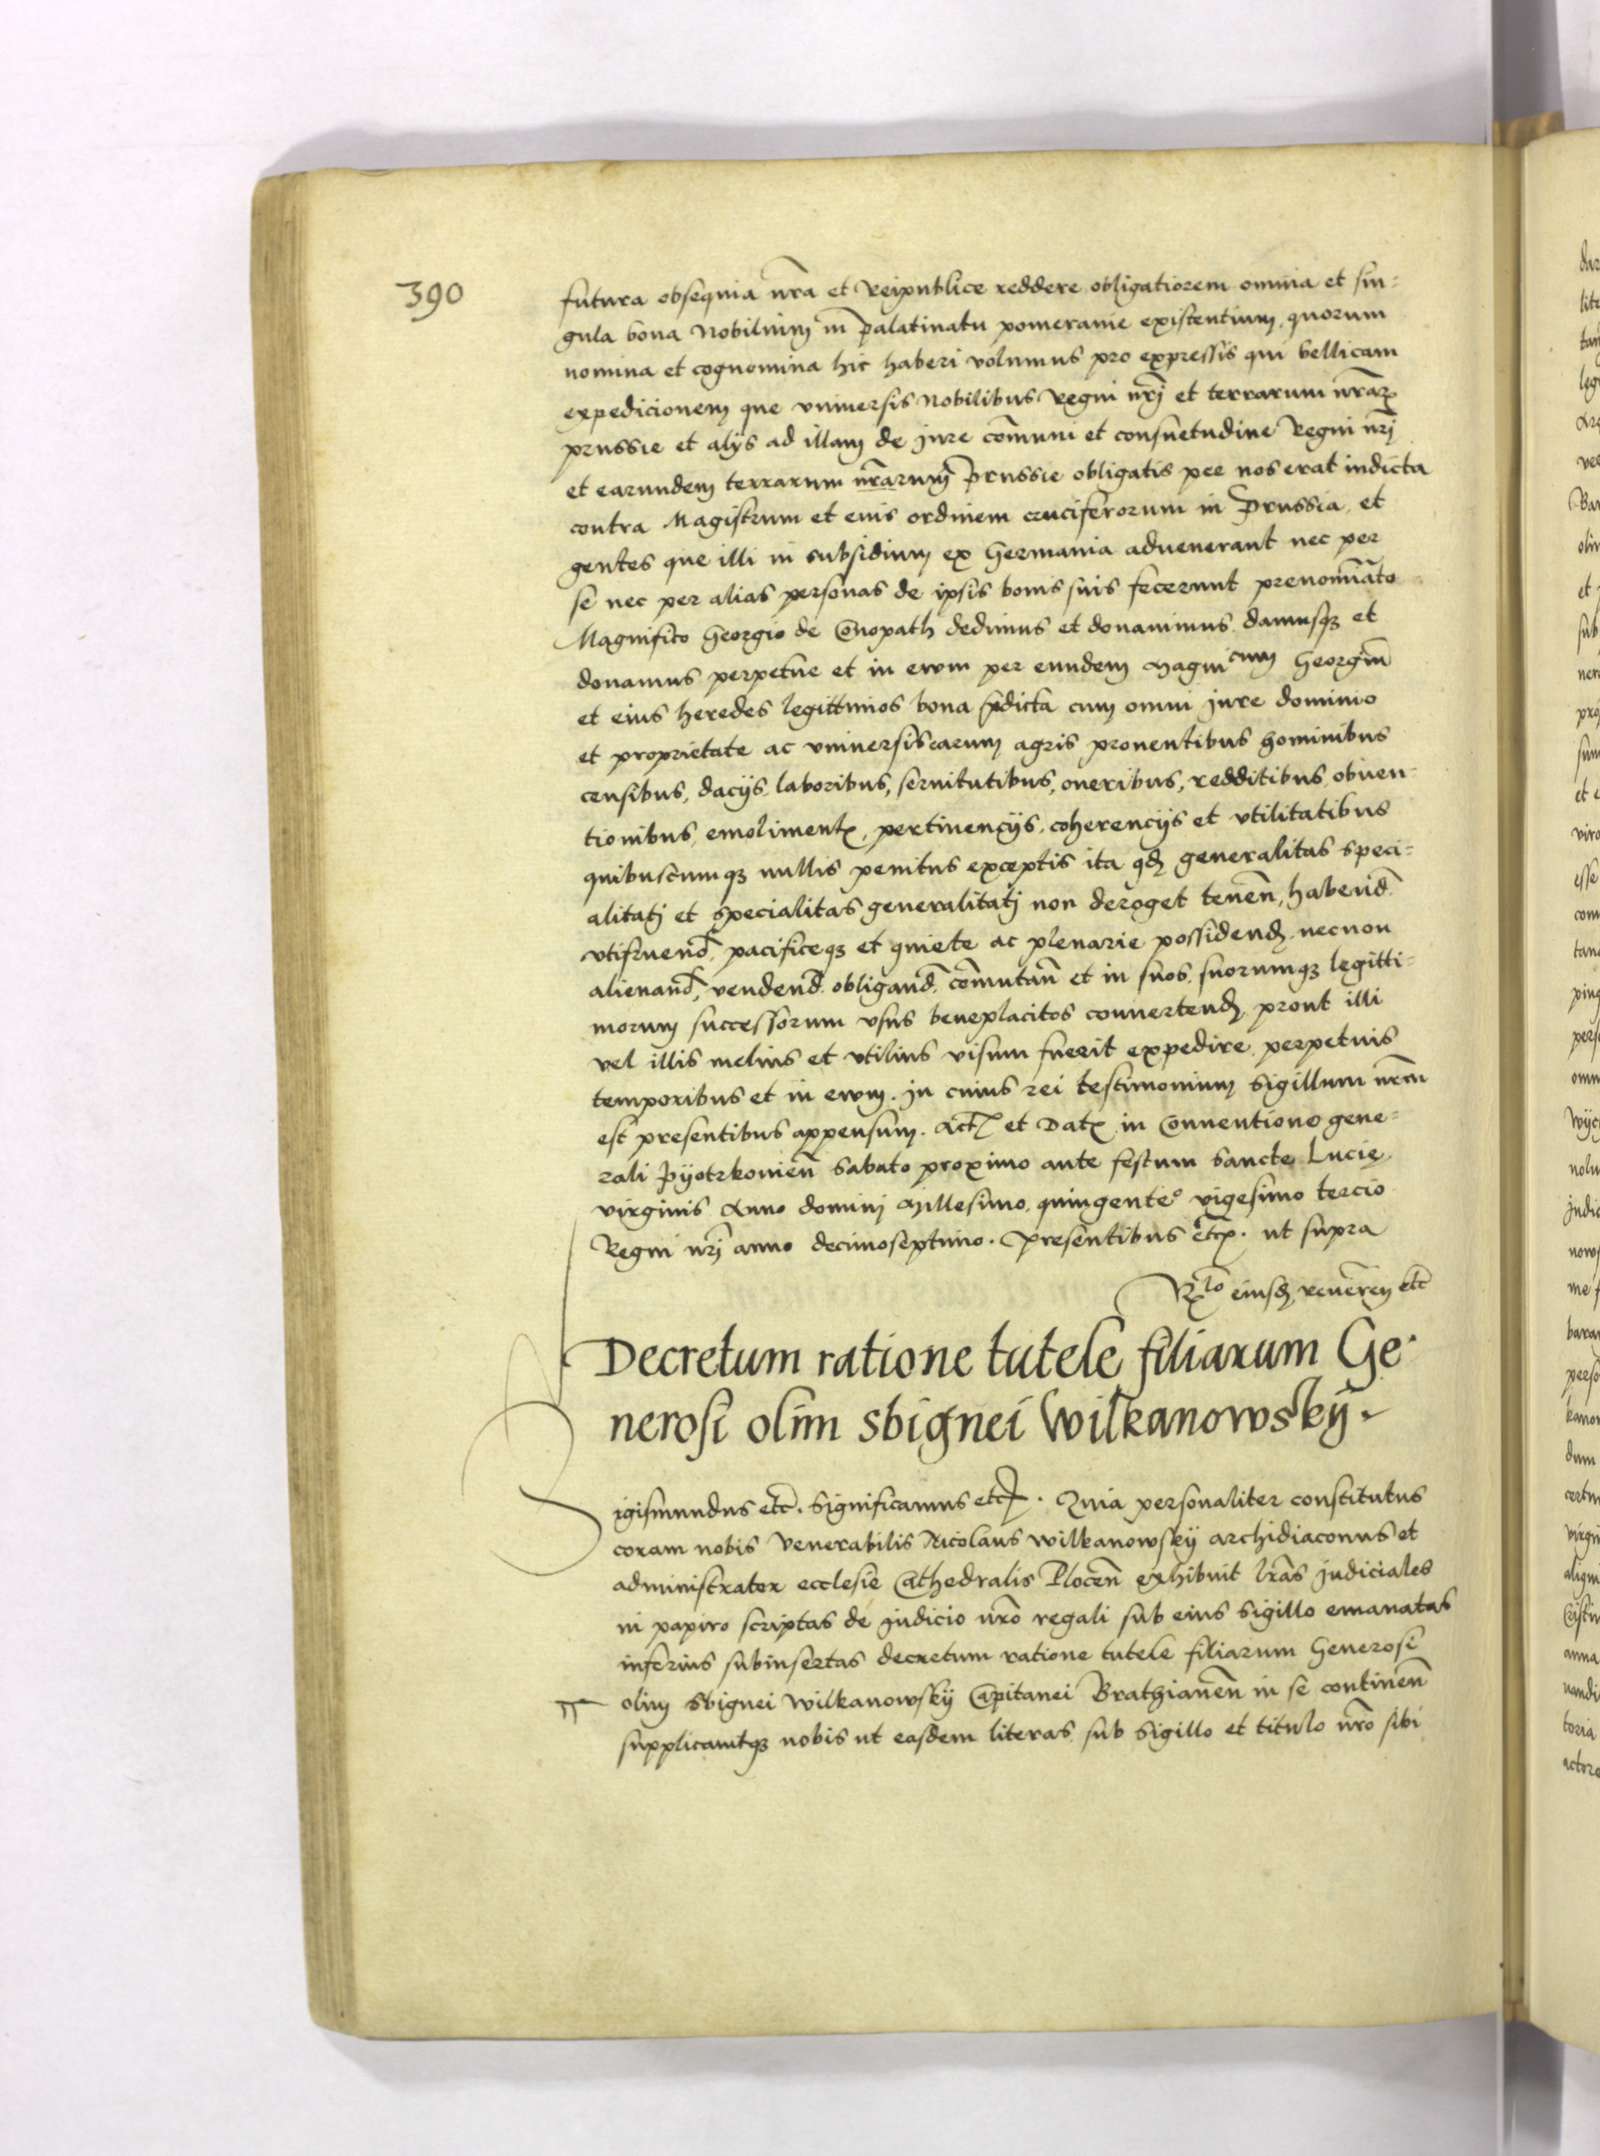 390
futura obsequia nr̃a et Reipublice reddere obligatiorem omnia et sin-
gula bona Nobilium in Palatinatu pomeranie existentium, quorum
nomina et cognomina hic haberi volumus pro expressis qui bellicam
expedicionem que vniuersis Nobilibus Regni nr̃j et terrarum nr̃arꝝ
prussie et alijs ad illam de jure com̃uni et consuetudine Regni nr̃j
et earundem terrarum nr̃arum Prussie obligatis per nos erat indicta
contra Magistrum et eius ordinem cruciferorum in Prussia, et
gentes que illi in subsidium ex Germania aduenerant nec per
se nec per alias personas de ipsis bonis suis fecerunt prenomĩato
Magnifico Georgio de Conopath dedimus et donauimus damusqꝫ et
donamus perpetue et in ewm per eundem Magnicum Georgiũ
et eius heredes legittimos bona p̃dicta cum omni jure dominio
et proprietate ac vniuersis earum agris prouentibus hominibus
censibus, dacijs, laboribus, seruitutibus, oneribus, redditibus, obuen-
tionibus, emolimentꝭ, pertinencijs, coherencijs et vtilitatibus
quibuscumqꝫ nullis penitus exceptis ita qđ generalitas speci-
alitatj et specialitas generalitatj non deroget tenen̄, habend̄
vtifruend̄, pacificeqꝫ et quiete ac plenarie possidend̄ necnon
alienand̄, vendend̄ obligand̄, com̃utan̄ et in suos suorumqꝫ legitti-
morum successorum vsus beneplacitos conuertend̄, prout illi
vel illis melius et vtilius visum fuerit expedire perpetuis
temporibus et in ewm. Jn cuius rei testimonium Sigillum nr̃m
est presentibus appensum. Actꝭ et Datꝭ in Conuentione gene-
rali Pijotrkouien̄ Sabato proximo ante festum Sancte Lucie
virginis Anno dominj Millesimo quingenteº vigesimo tercio
Regni nr̃j anno decimoseptimo. Presentibus etcꝭ. ut supra
Rlo eiusđ reueren etc̄
Decretum ratione tutele filiarum Ge
nerosi olim sbignei Wilkanowskij
Sigismundus etc̄. Significamus etcꝭ. Quia personaliter constitutus
coram nobis Venerabilis Nicolaus Wilkanowskij archidiaconus et
administrator ecclesie Cathedralis Plocen̄ exhibuit lr̃as judiciales
in papiro scriptas de judicio nr̃o regali sub eius Sigillo emanatas
inferius subinsertas decretum ratione tutele filiarum Generosi
olim Sbignei Wilkanowskij Capitanei Brathianen̄ in se continen̄
supplicauitqꝫ nobis ut easdem literas sub Sigillo et titulo nr̃o sibi